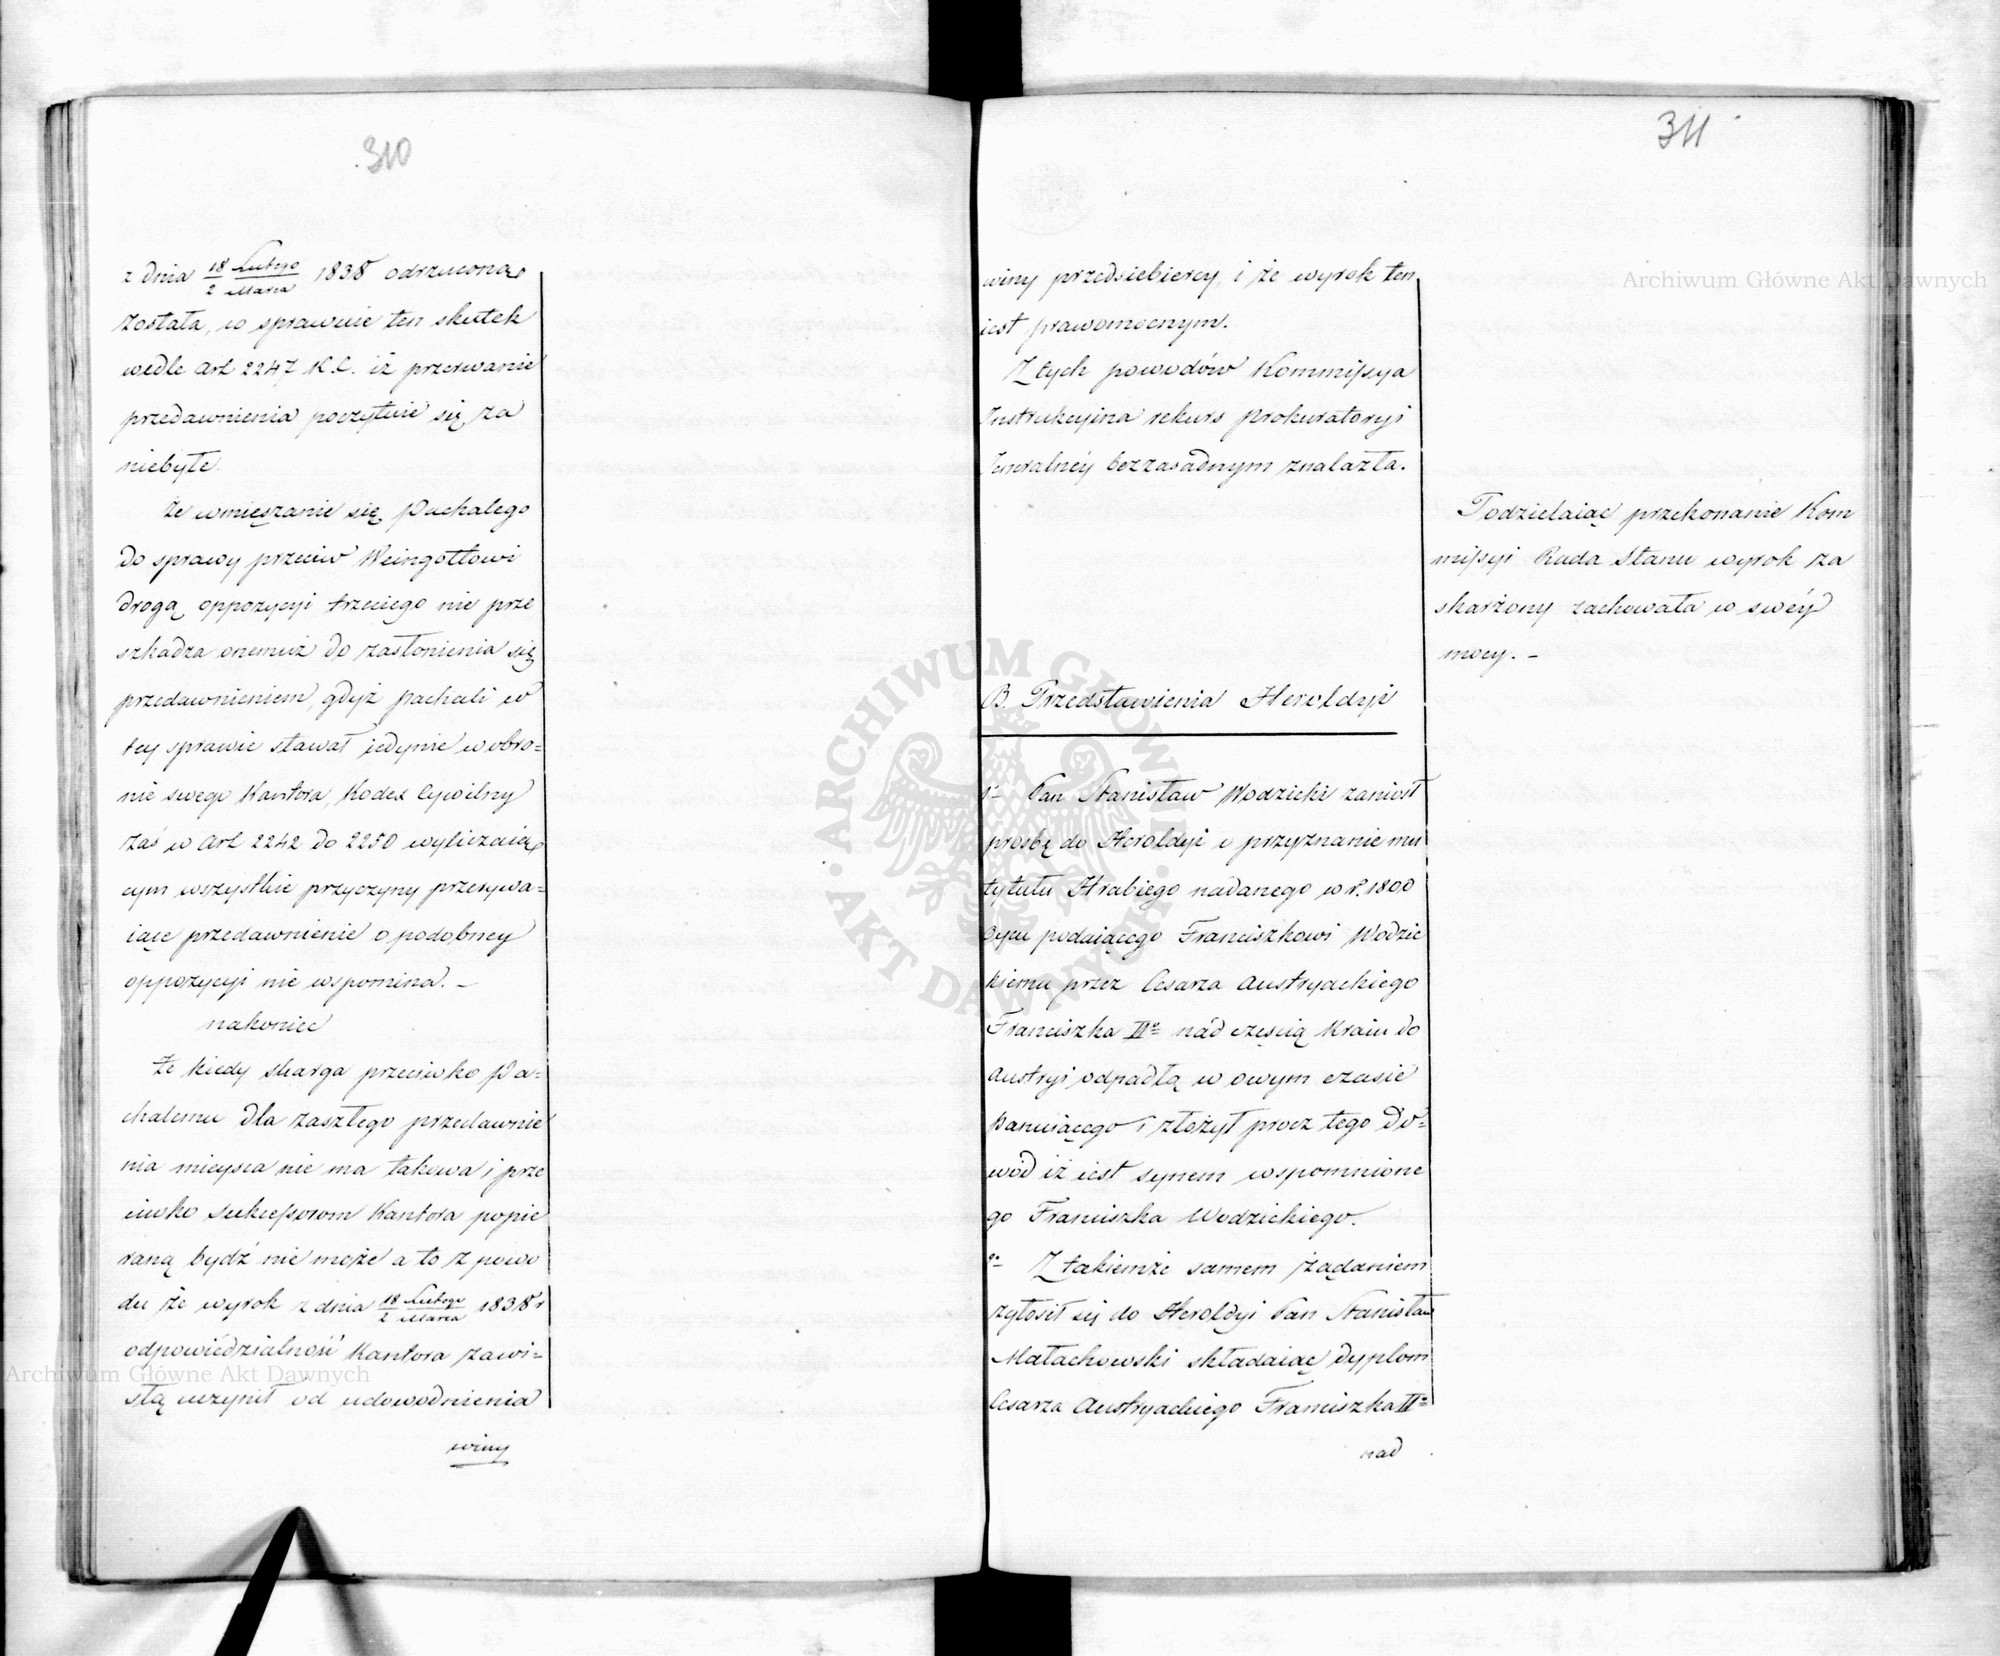 310
z dnia 18 Lutego / 2 Marca 1838 odrzucona
została, w sprawie ten skutek
wedle Art 2247 K.C. iż przerwanie
przedawnienia poczytuie się za
niebyłe.
Że wmięszanie się Pachalego
do sprawy przeciw Weingottowi
drogą oppozycyi trzeciego nie prze
szkadza onemuż do zasłonienia się
przedawnieniem, gdyż Pachali w
tey sprawie stawał iedynie w obro=
nie swego Kantora, Kodex Cywilny
zaś w Art 2242 do 2250 wyliczaią
cym wszystkie przyczyny przerywa=
iące przedawnienie o podobney
oppozycyi nie wspomina. –
nakoniec
Że kiedy skarga przeciwko Pa=
chalemu dla zaszłego przedawnie
nia mieysca nie ma takowa i prze
ciwko sukcessorom Kantora popie
raną bydź nie może a to z powo
du że wyrok z dnia 18 Lutego / 2 Marca 1838 r
odpowiedzialność Kantora zawi=
słą uczynił od udowodnienia
winy
311
winy przedsiebiercy, i że wyrok ten
iest prawomocnym.
Z tych powodów Kommissya
Instrukcyina rekurs Prokuratoryi
Jeneralnéy bezzasadnym znalazła.
Podzielaiąc przekonanie Kom
missyi Rada Stanu wyrok za
skarżony zachowała w swéy
mocy. –
B. Przedstawienia Heroldyi
1o Pan Stanisław Wodzicki zaniosł
prosbę do Heroldyi o przyznanie mu
tytułu Hrabiego nadanego w r. 1800
Oycu podaiącego Franciszkowi Wodzic
kiemu przez Cesarza Austryackiego
Franciszka IIo nad częścią Kraiu do
Austryi odpadłą w owym czasie
Panuiącego i złożył procz tego do=
wód iż iest synem wspomnione
go Franciszka Wodzickiego.
2o Z takiemże samem żądaniem
zgłosił się do Heroldyi Pan Stanisław
Małachowski składaiąc dyplom
Cesarza Austryackiego Franciszka IIo
nad
Archiwum Główne Akt Dawnych
Archiwum Główne Akt Dawnych
ARCHIWUM GŁÓWNE AKT DAWNYCH